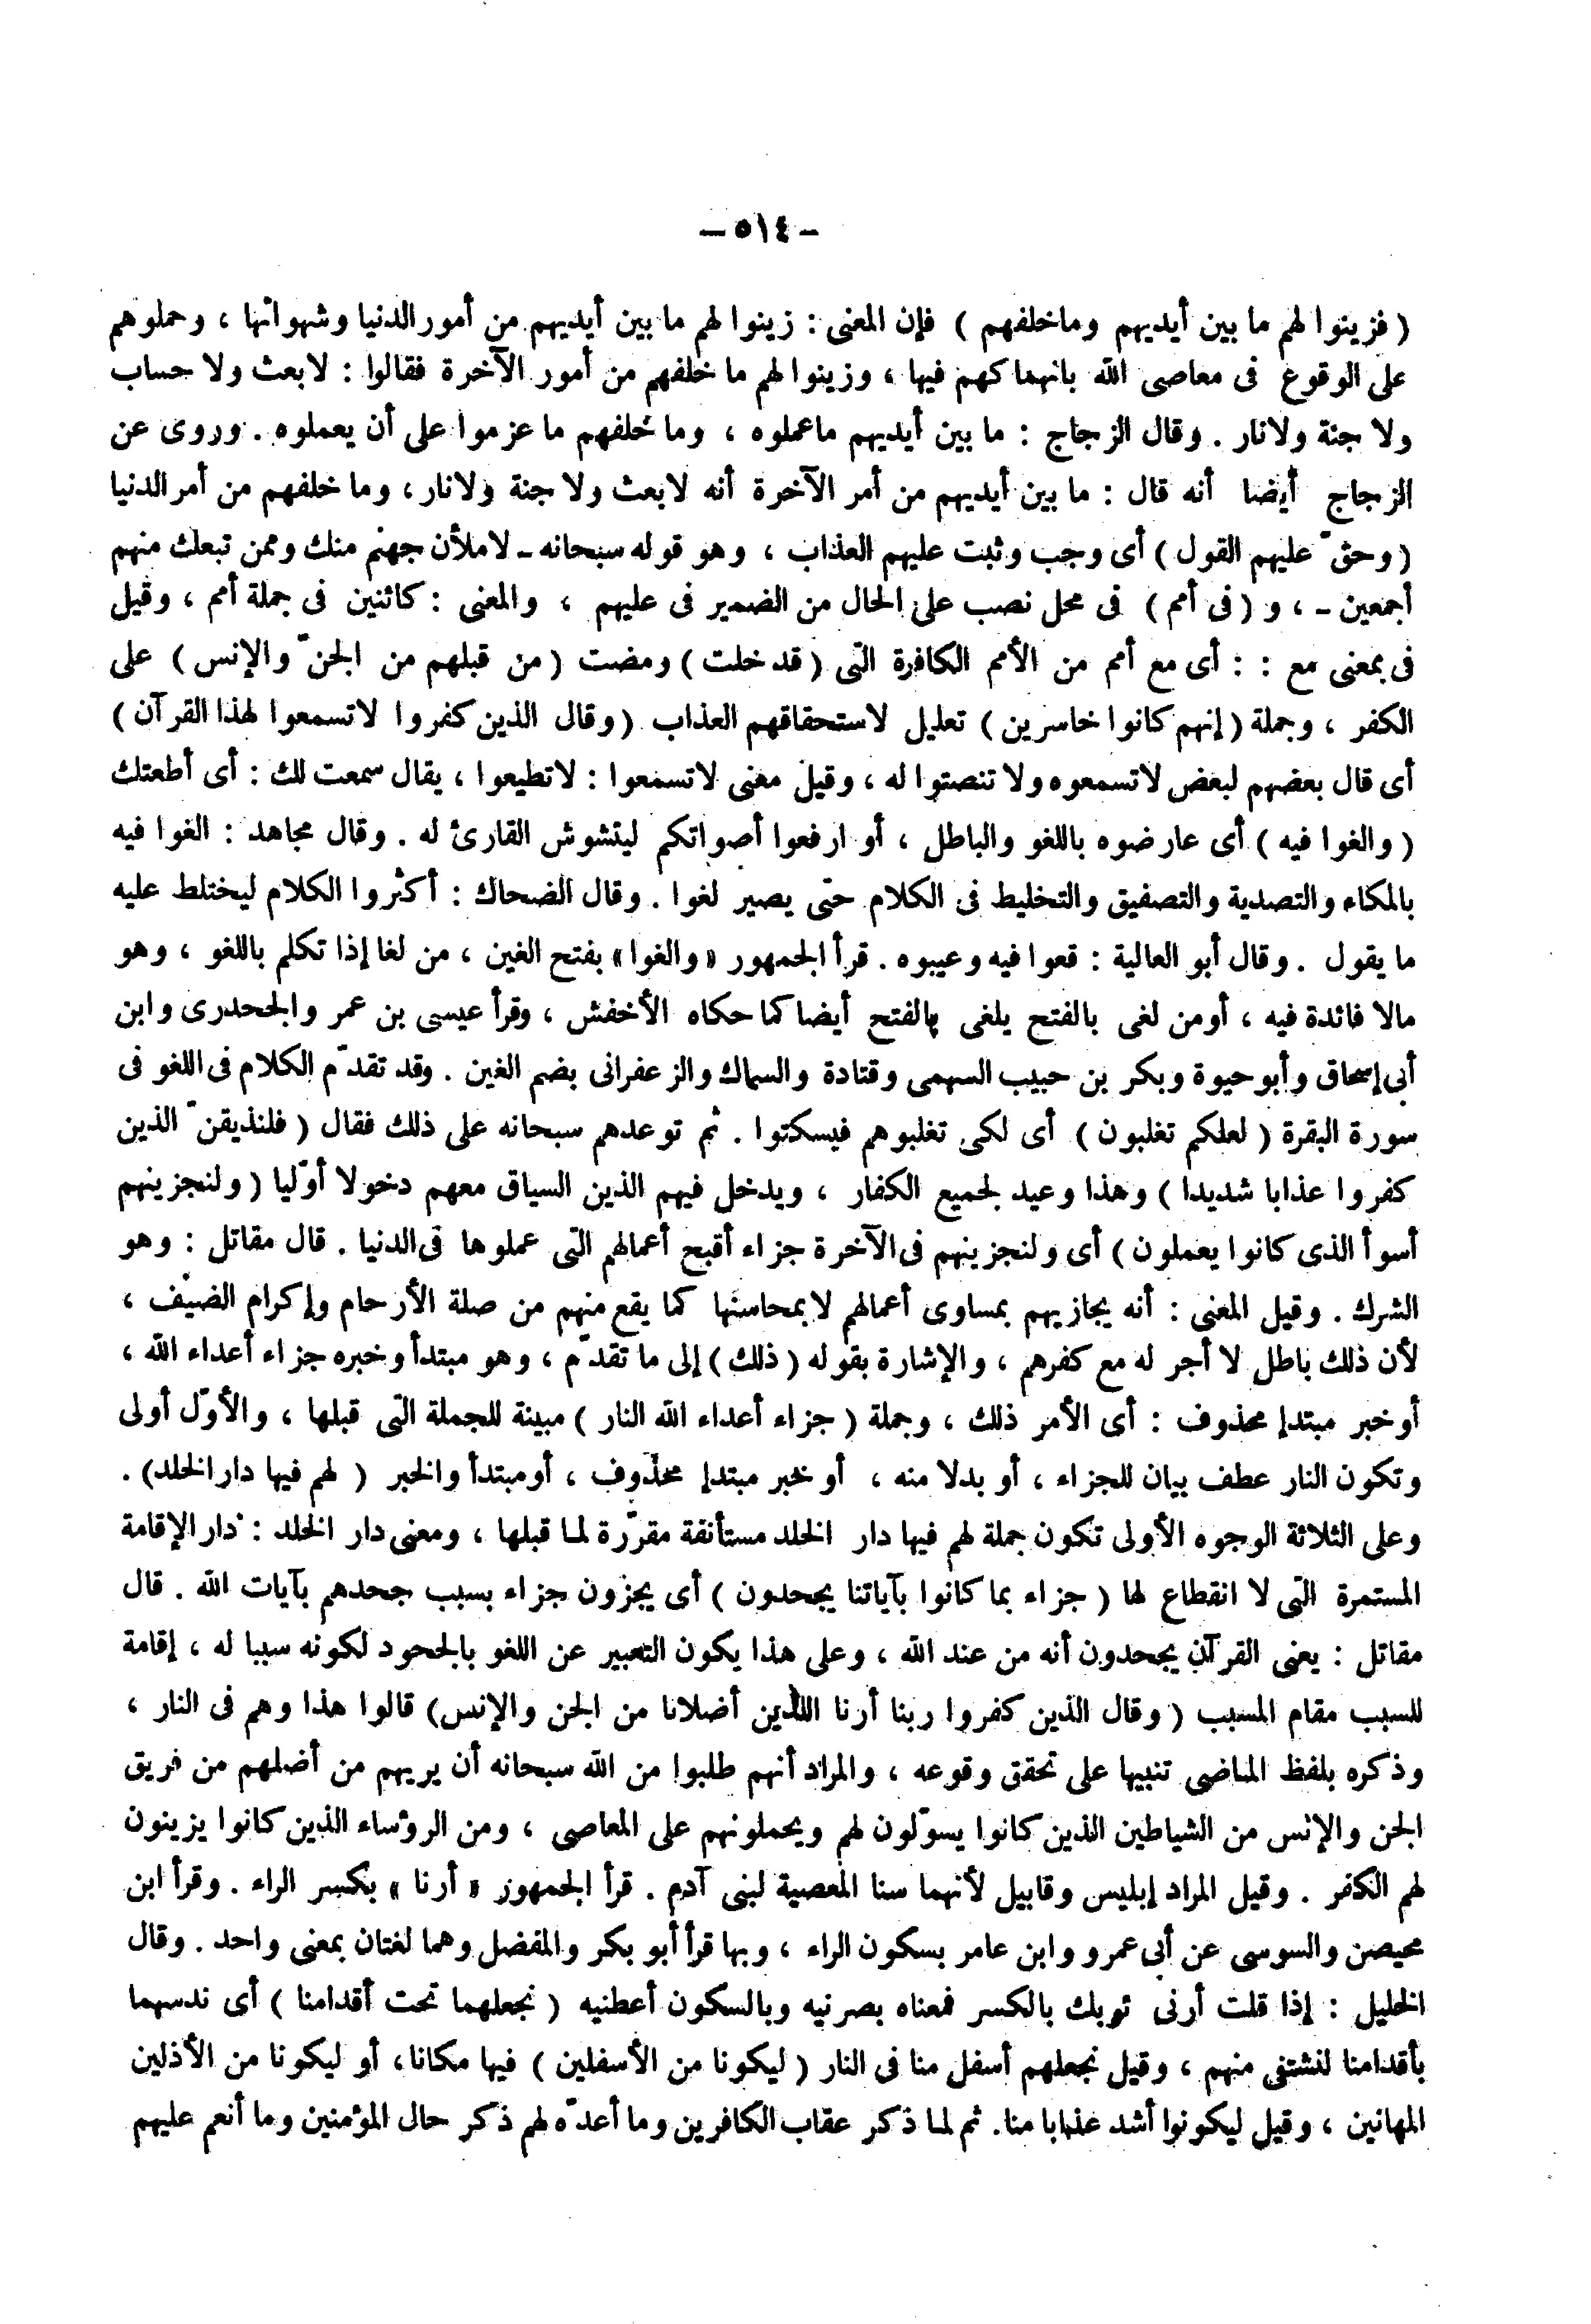 – ٥١٤ –
( فزينوا لهم ما بين أيديهم وماخلفهم ) فإن المعنى : زينوا لهم ما بين أيديهم من أمور الدنيا وشهواتها ، وحملوهم
على الوقوع فى معاصى الله بانهماكهم فيها ، وزينوا لهم ما خلفهم من أمور الآخرة فقالوا : لا بعث ولا حساب
ولا جنة ولا نار . وقال الزجاج : ما بين أيديهم ماعملوه ، وما خلفهم ما عزموا على أن يعملوه . وروى عن
الزجاج أيضا أنه قال : ما بين أيديهم من أمر الآخرة أنه لا بعث ولا جنة ولا نار ، وما خلفهم من أمر الدنيا
( وحقّ عليهم القول ) أى وجب وثبت عليهم العذاب ، وهو قوله سبحانه ـ لأملأن جهنم منك وممن تبعك منهم
أجمعين ـ ، و ( فى أمم ) فى محل نصب على الحال من الضمير فى عليهم ، والمعنى : كائنين فى جملة أمم ، وقيل
فى بمعنى مع : : أى مع أمم من الأمم الكافرة التى ( قد خلت ) ومضت ( من قبلهم من الجنّ والإنس ) على
الكفر ، وجملة ( إنهم كانوا خاسرين ) تعليل لاستحقاقهم العذاب ( وقال الذين كفروا لا تسمعوا لهذا القرآن )
أى قال بعضهم لبعض لا تسمعوه ولا تنصتوا له ، وقيل معنى لا تسمعوا : لا تطيعوا ، يقال سمعت لك : أى أطعتك
( والغوا فيه ) أى عارضوه باللغو والباطل ، أو ارفعوا أصواتكم ليتشوش القارئ له . وقال مجاهد : الغوا فيه
بالمكاء والتصدية والتصفيق والتخليط فى الكلام حتى يصير لغوا . وقال الضحاك : أكثروا الكلام ليختلط عليه
ما يقول . وقال أبو العالية : قعوا فيه وعيبوه . قرأ الجمهور « والغوا » بفتح الغين ، من لغا إذا تكلم باللغو ، وهو
مالا فائدة فيه ، أومن لغى بالفتح يلغى بالفتح أيضا كما حكاه الأخفش ، وقرأ عيسى بن عمر والجحدرى وابن
أبى إسحاق وأبو حيوة وبكر بن حبيب السهمى وقتادة والسماك والزعفرانى بضم الغين . وقد تقدّم الكلام فى اللغو فى
سورة البقرة ( لعلكم تغلبون ) أى لكى تغلبوهم فيسكتوا . ثم توعدهم سبحانه على ذلك فقال ( فلنذيقنّ الذين
كفروا عذابا شديدا ) وهذا وعيد لجميع الكفار ، ويدخل فيهم الذين السياق معهم دخولا أوّليا ( ولنجزينهم
أسوأ الذى كانوا يعملون ) أى ولنجزينهم فى الآخرة جزاء أقبح أعمالهم التى عملوها فى الدنيا . قال مقاتل : وهو
الشرك . وقيل المعنى : أنه يجازيهم بمساوى أعمالهم لا بمحاسنها كما يقع منهم من صلة الأرحام وإكرام الضيف ،
لأن ذلك باطل لا أجر له مع كفرهم ، والإشارة بقوله ( ذلك ) إلى ما تقدّم ، وهو مبتدأ وخبره جزاء أعداء الله ،
أو خبر مبتدإ محذوف : أى الأمر ذلك ، وجملة ( جزاء أعداء الله النار ) مبينة للجملة التى قبلها ، والأوّل أولى
وتكون النار عطف بيان للجزاء ، أو بدلا منه ، أو خبر مبتدإ محذوف ، أو مبتدأ والخبر ( لهم فيها دار الخلد) .
وعلى الثلاثة الوجوه الأولى تكون جملة لهم فيها دار الخلد مستأنفة مقرّرة لما قبلها ، ومعنى دار الخلد : دار الإقامة
المستمرة التى لا انقطاع لها ( جزاء بما كانوا بآياتنا يجحدون ) أى يجزون جزاء بسبب جحدهم بآيات الله . قال
مقاتل : يعنى القرآن يجحدون أنه من عند الله ، وعلى هذا يكون التعبير عن اللغو بالجحود لكونه سببا له ، إقامة
للسبب مقام المسبب ( وقال الذين كفروا ربنا أرنا اللذين أضلانا من الجن والإنس) قالوا هذا وهم فى النار ،
وذكره بلفظ الماضى تنبيها على تحقق وقوعه ، والمراد أنهم طلبوا من الله سبحانه أن يريهم من أضلهم من فريق
الجن والإنس من الشياطين الذين كانوا يسوّلون لهم ويحملونهم على المعاصى ، ومن الرؤساء الذين كانوا يزينون
لهم الكفر . وقيل المراد إبليس وقابيل لأنهما سنا المعصية لبنى آدم . قرأ الجمهور « أرنا » بكسر الراء . وقرأ ابن
محيصن والسوسى عن أبى عمرو وابن عامر بسكون الراء ، وبها قرأ أبو بكر والمفضل وهما لغتان بمعنى واحد . وقال
الخليل : إذا قلت أرنى ثوبك بالكسر فمعناه بصرنيه وبالسكون أعطنيه ( نجعلهما تحت أقدامنا ) أى ندسهما
بأقدامنا لنشتفى منهم ، وقيل نجعلهم أسفل منا فى النار ( ليكونا من الأسفلين ) فيها مكانا ، أو ليكونا من الأذلين
المهانين ، وقيل ليكونوا أشد عذابا منا. ثم لما ذكر عقاب الكافرين وما أعدّه لهم ذكر حال المؤمنين وما أنعم عليهم